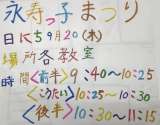 永寿っ子まつり
日にち9月20日(木)
場所各教室
時間〈前半〉9:40〜10:25
〈こうたい〉10:25〜10:30
〈後半〉10:30〜11:15